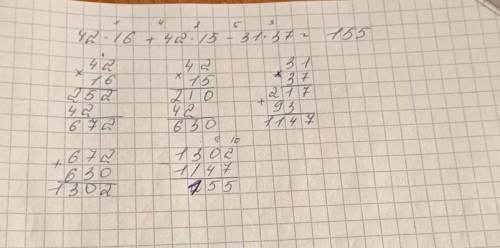 1 4 2 5 3
42 · 16 + 42 · 15 - 31 · 37 = 155
42 42 31
× 16 × 15 × 37
252 210 217
42 42 + 93
672 630 1147
+ 672 1302
630 1147
1302 155